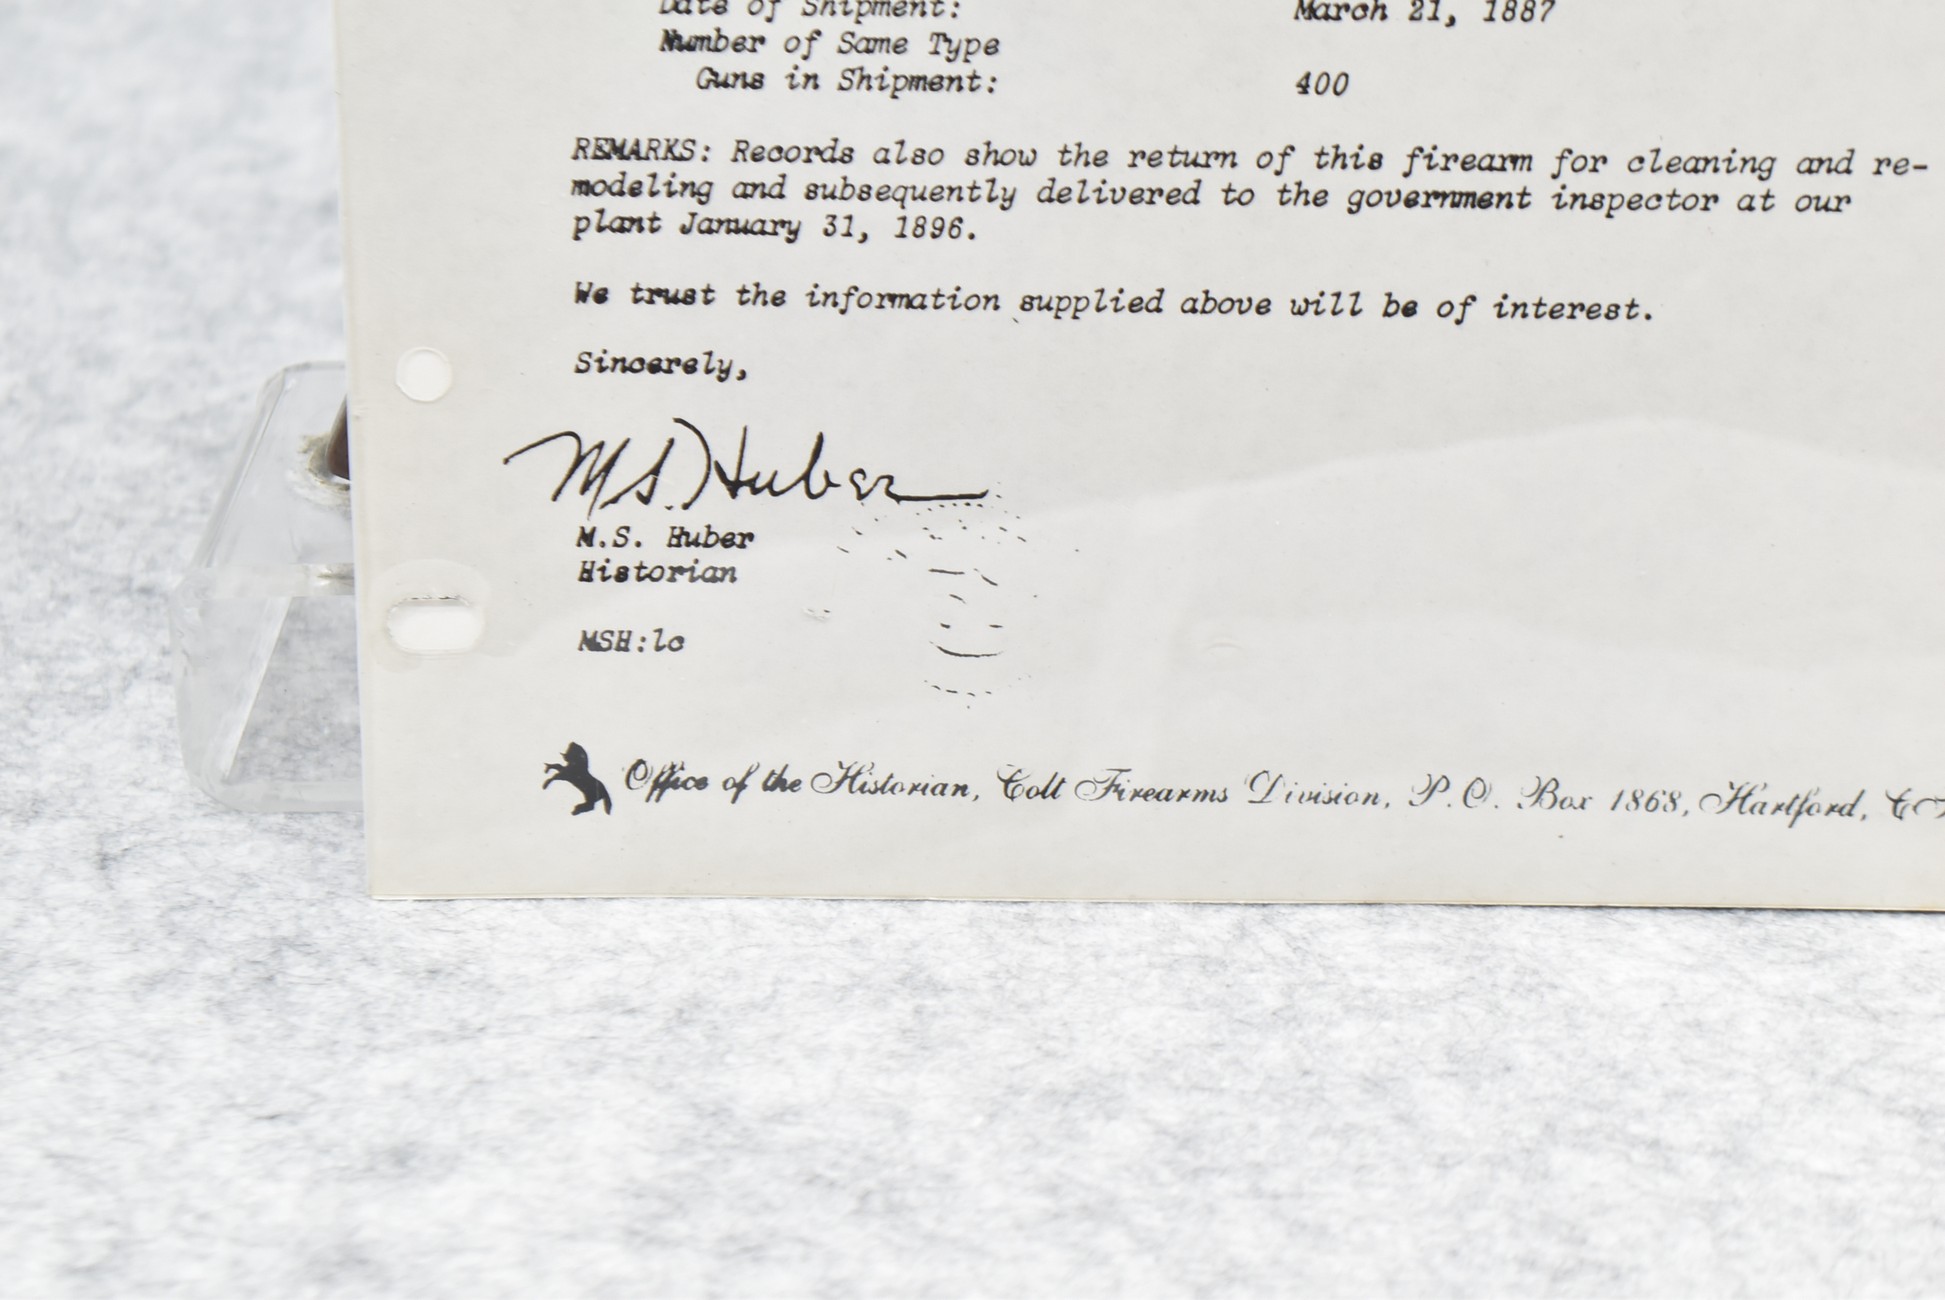 Date of Shipment: March 21, 1887
Number of Same Type
Guns in Shipment: 400
REMARKS: Records also show the return of this firearm for cleaning and re-
modeling and subsequently delivered to the government inspector at our
plant January 31, 1896.
We trust the information supplied above will be of interest.
Sincerely,
M.S. Huber
M.S. Huber
Historian
MSH:lc
Office of the Historian, Colt Firearms Division, P.O. Box 1868, Hartford, CT